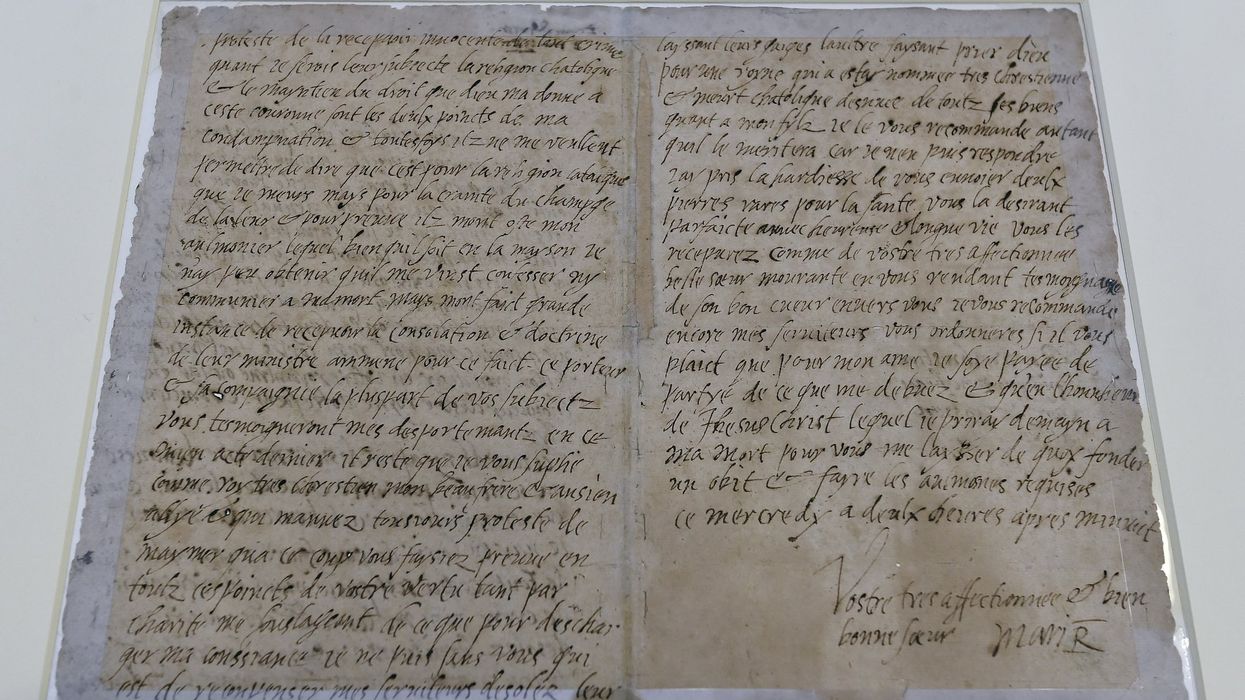 proteste de la recepvoir innocente de tout crime
quant ie serois leur subiecte la religion chatolique
& le mayntien du droit que dieu ma donne a
ceste couronne sont les deulx poincts de ma
condampnation & toutesfoys ilz ne me veullent
permettre de dire que cest pour la religion catolique
que ie meurs mays pour la crainte du champge
de la leur & pour preuue ilz mont oste mon
aulmonier lequel bien quil soit en la mayson ie
nay peu obtenir quil me vinst confesser ny
communier a ma mort mays mont faict grande
instance de recepvoir la consolation & doctrine
de leur ministre ammene pour ce faict ce porteur
& sa compaignie la pluspart de vos subiectz
vous tesmoigneront mes desportemantz en ce
mien acte dernier il reste que ie vous suplie
comme roy tres chrestien mon beau frere & ansien
allye & qui mauuez tousiours proteste de
maymer qua ce coup vous faysiez preuue en
toutz ces poincts de vostre vertu tant par
charite me soulageant de ce que pour deschar
ger ma conssiance ie ne puis sans vous qui
est de reconpenser mes seruiteurs desolez leur
layssant leurs gaiges laultre faysant prier dieu
pour une royne qui a estay nommee tres chrestienne
& meurt chatolique desnuee de toutz ses biens
quant a mon fylz ie le vous recommande autant
quil le meritera car ie nen puis respondre
iay pris la hardiesse de vous enuoier deulx
pierres rares pour la sante vous la desirant
parfaicte auuec heureuse & longue vie vous les
recepvrez comme de vostre tres affectionnee
belle sœur mourante en vous rendant tesmoygnasge
de son bon cueur enuers vous ie vous recommande
encore mes seruiteurs vous ordonneres si il vous
plaict que pour mon ame ie soye payee de
partye de ce que me debuez & quen lhonneur
de Jhesus Christ lequel ie priray demayn a
ma mort pour vous me laysser de quoy fonder
un obit & fayre les aulmones requises
ce mercredy a deulx heures apres minuit
Vostre tres affectionnee & bien
bonne sœur MariR